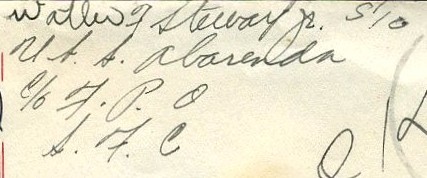 Walter F Stewart Jr. S1/c
U.S.S. Abarenda
c/o F. P. O
S. F. C